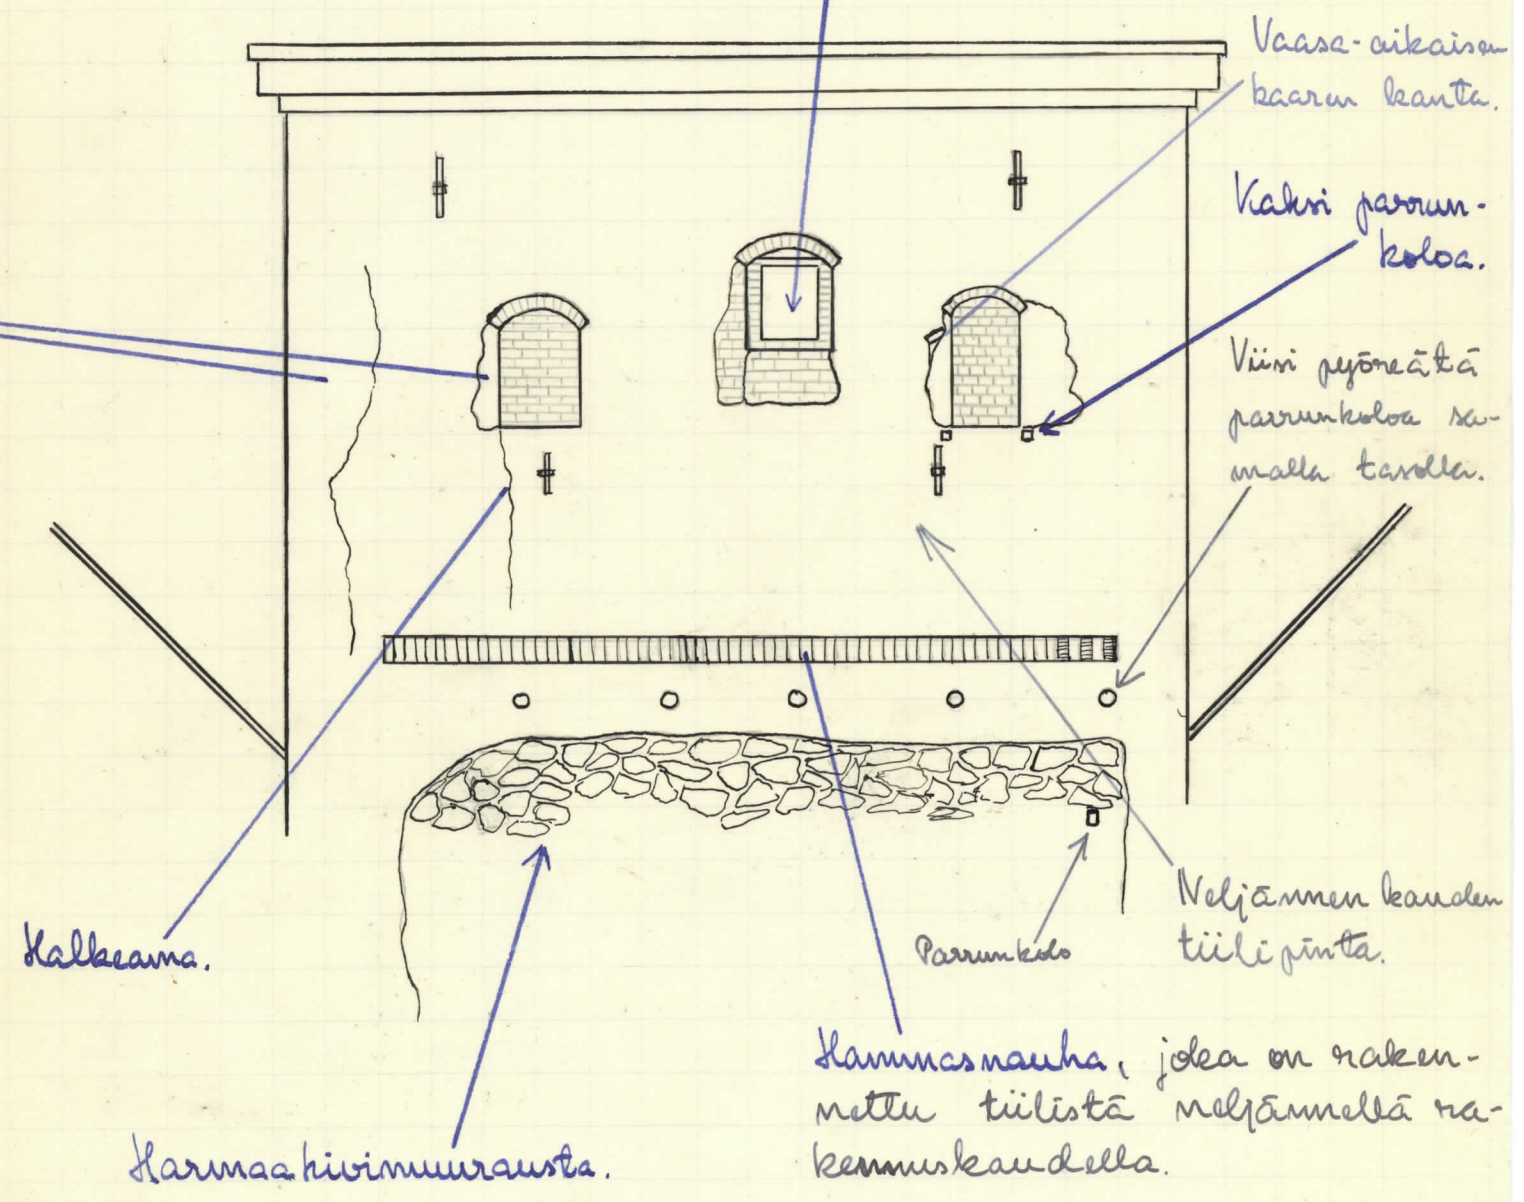 Vaasa-aikaisen
kaaren kanta.
Kaksi parrun-
koloa.
Viisi pyöreätä
parrunkoloa sa-
malla tasolla.
Neljännen kauden
tiilipinta.
Parrunkolo
Halkeama.
Hammasnauha, joka on raken-
nettu tiilistä neljännellä ra-
kennuskaudella.
Harmaakivimuurausta.